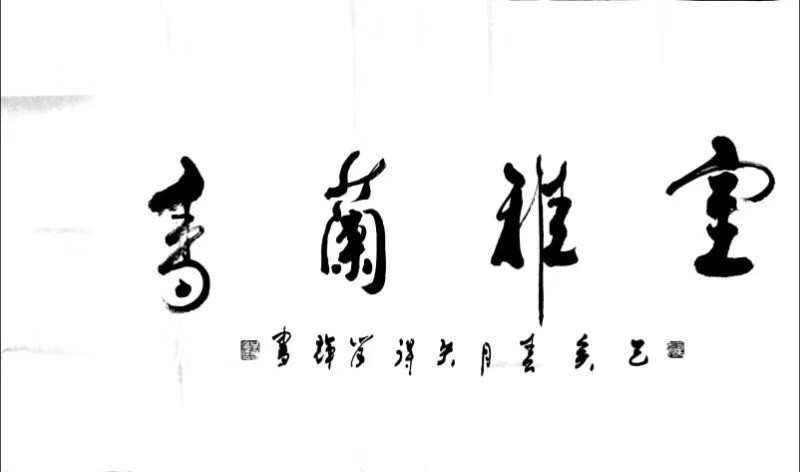 室雅蘭香
己亥春月得輝書